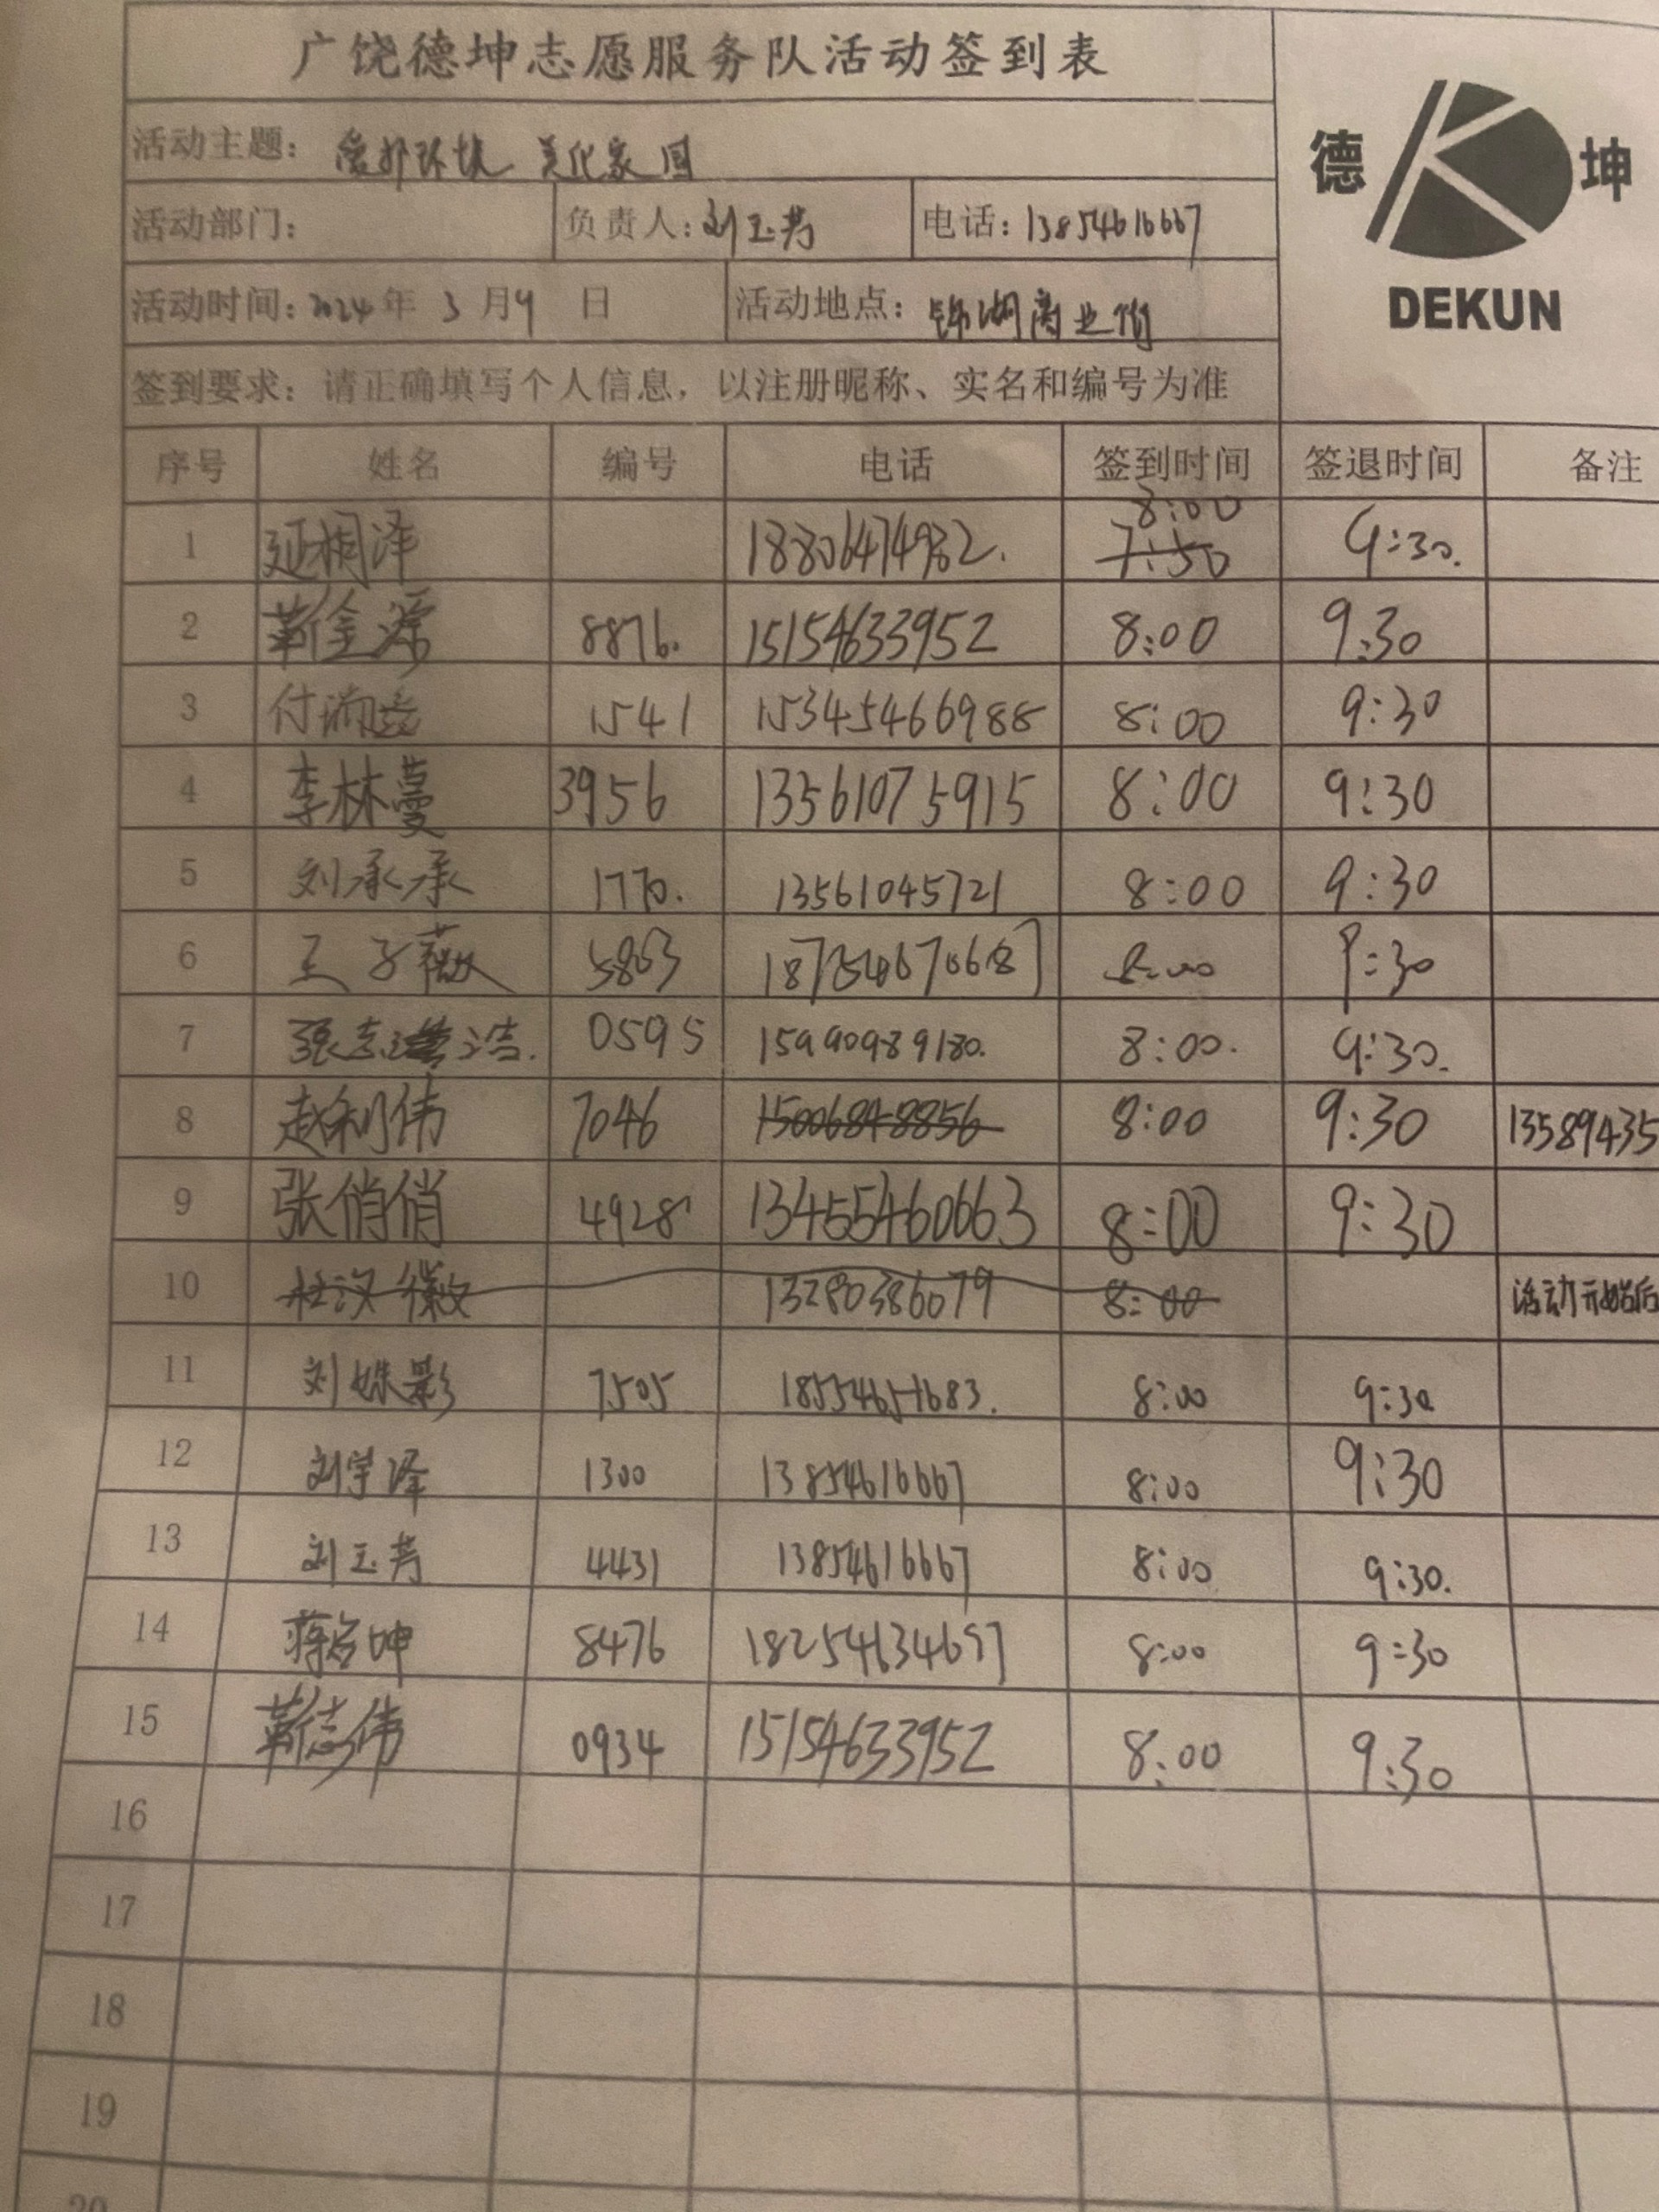 广饶德坤志愿服务队活动签到表
德 坤
DEKUN
活动主题：爱护环境 美化家园
活动部门： 负责人：刘玉芳 电话：13854616667
活动时间：2024年 3月9 日 活动地点：锦湖商业街
签到要求：请正确填写个人信息，以注册昵称、实名和编号为准
序号 姓名 编号 电话 签到时间 签退时间 备注
1 延桐泽 18806474982. 8:00 7:50 9:30.
2 靳金源 8876. 15154633952 8:00 9:30
3 付 1541 15345466988 8:00 9:30
4 李林蔓 3956 13561075915 8:00 9:30
5 刘承承 1770. 13561045721 8:00 9:30
6 王子薇 5863 8:00 9:30
7 张志浩. 0595 15990989180. 8:00. 9:30.
8 赵利伟 7046 15006848856 8:00 9:30 13589435
9 张俏俏 4928 13455460663 8:00 9:30
10 杜汶徽 13280386079 8:00 活动开始后
11 刘姝影 7505 18554651683. 8:00 9:30
12 刘宇泽 1300 13854616667 8:00 9:30
13 刘玉芳 4431 13854616667 8:00 9:30.
14 蒋名坤 8476 18254634697 8:00 9:30
15 靳志伟 0934 15154633952 8:00 9:30
16
17
18
19
20